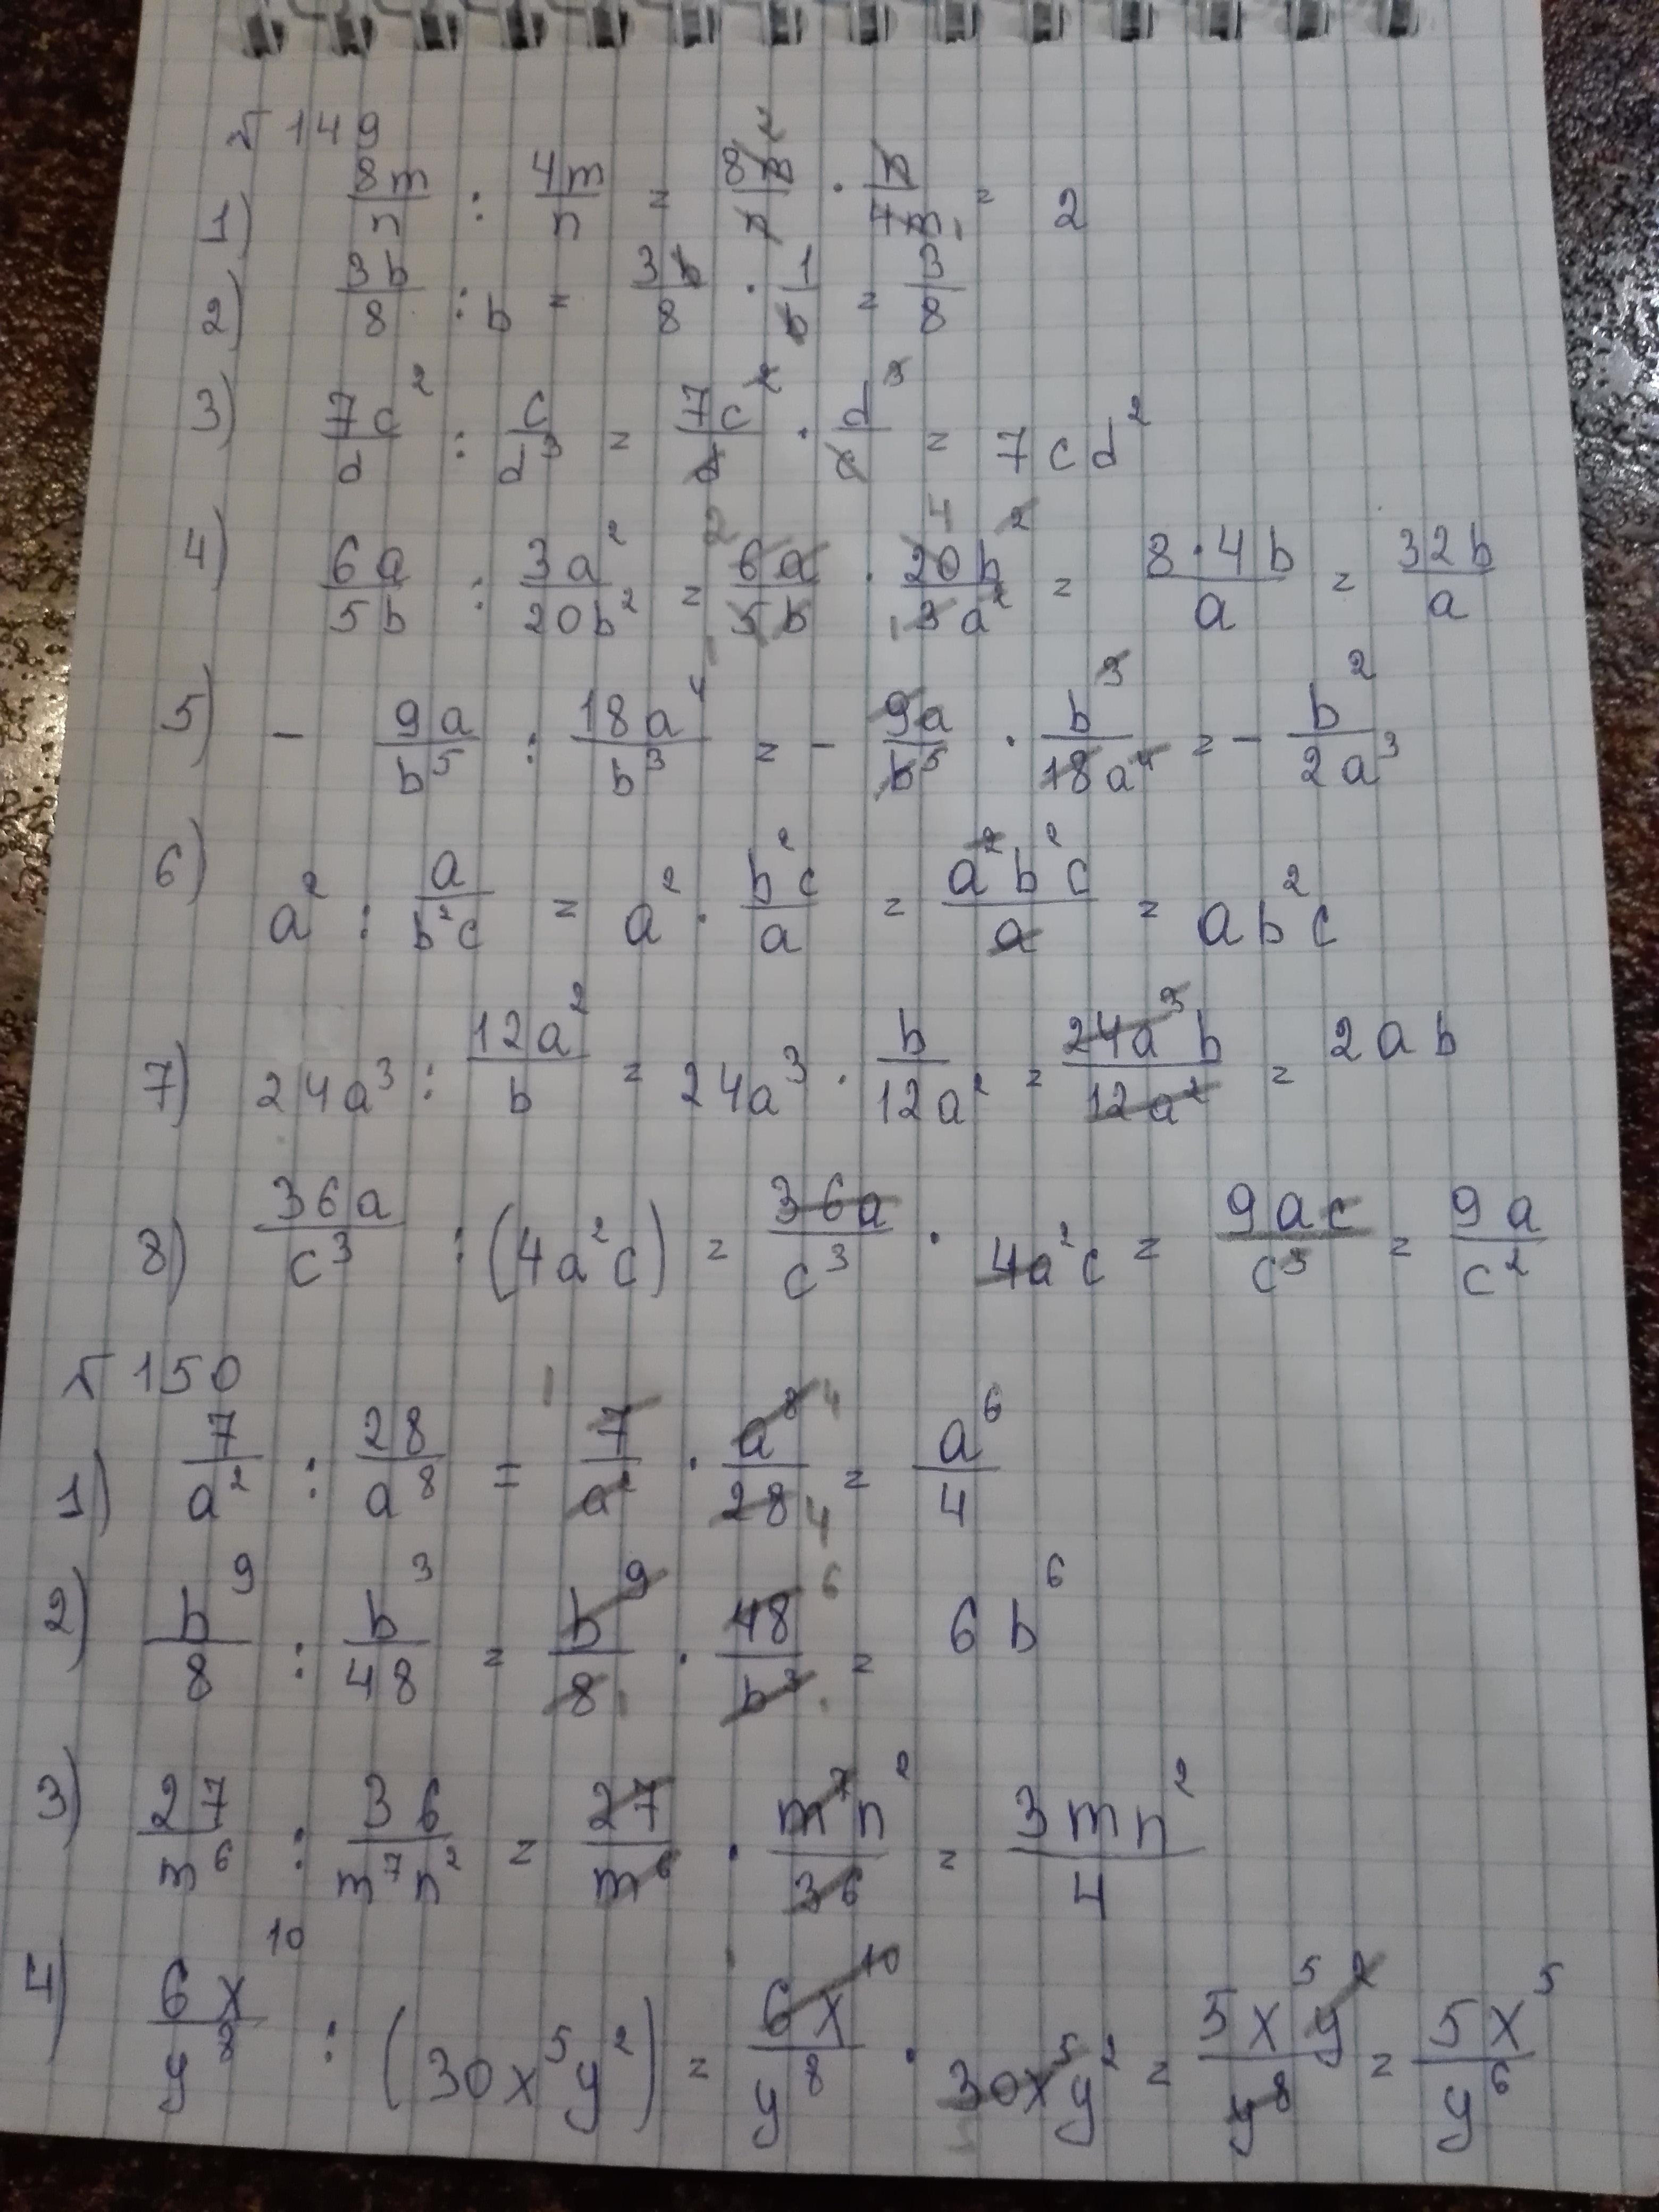 № 149
1) 8m/n : 4m/n = 8m/n · n/4m = 2
2) 3b/8 : b = 3b/8 · 1/b = 3/8
3) 7c²/d : c/d³ = 7c²/d · d³/c = 7cd²
4) 6a/5b : 3a²/20b² = 6a/5b · 20b²/3a² = 8·4b/a = 32b/a
5) - 9a/b⁵ : 18a⁴/b³ = - 9a/b⁵ · b³/18a⁴ = - b²/2a³
6) a² : a/b²c = a² · b²c/a = a²b²c/a = ab²c
7) 24a³ : 12a²/b = 24a³ · b/12a² = 24a³b/12a² = 2ab
8) 36a/c³ : (4a²c) = 36a/c³ · 4a²c = 9ac/c³ = 9a/c²
№ 150
1) 7/a² : 28/a⁸ = 7/a² · a⁸/28 = a⁶/4
2) b⁹/8 : b³/48 = b⁹/8 · 48/b³ = 6b⁶
3) 27/m⁶ : 36/m⁷n² = 27/m⁶ · m⁷n²/36 = 3mn²/4
4) 6x¹⁰/y⁸ : (30x⁵y²) = 6x¹⁰/y⁸ · 30x⁵y² = 5x⁵y²/y⁸ = 5x⁵/y⁶